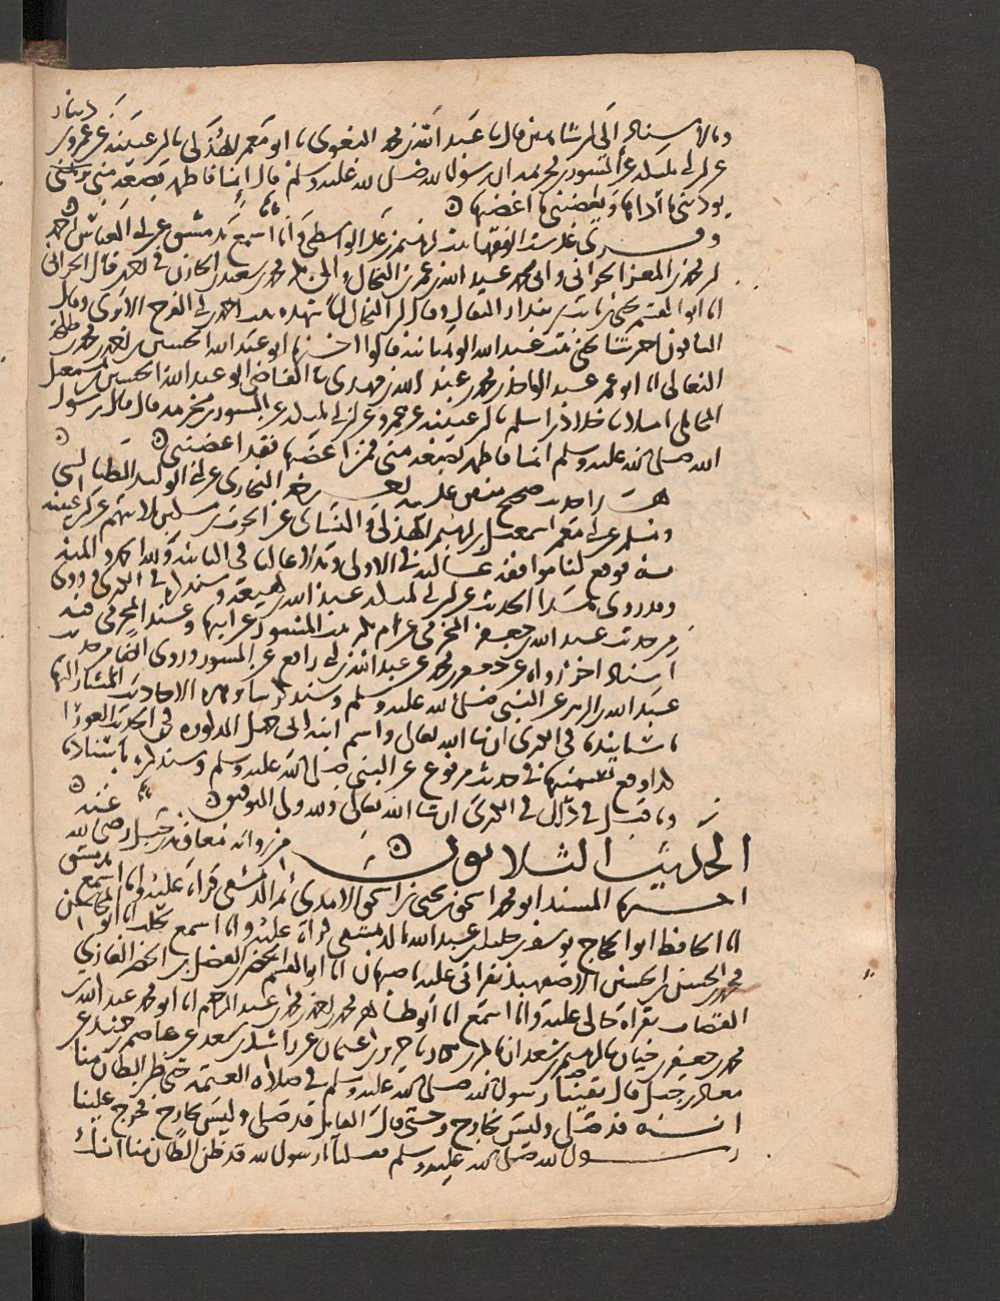 دينار
وبالاسناد الى ابن شاهين قال نا عبد الله بن محمد البغوي نا ابو معمر الهذلي نا ابن عيينة عن عمرو بن
عن ابن ابي مليكة عن المسور بن مخرمة ان رسول الله صلى الله عليه وسلم قال انما فاطمة بضعة مني
يوذيني ما آذاها ويغضبني ما اغضبها
وقرئ على ست الفقهاء بنت ابرهيم بن علي الواسطي وانا اسمع بدمشق عن ابي العباس احمد
الحراني وابي محمد عبيد الله بن عمر بن النخال وابي محمد سعيد ابن الخازن قال الحراني
انا ابو القسم يحيى بن ثابت بن بندار البقال وقال ابن النخال انا شهدة بنت احمد بن ابي الفرج الابري وقال
الباقون اخبرتنا تجني بنت عبد الله الوهبانية قالوا اخبرنا ابو عبد الله الحسين بن احمد بن محمد بن طلحة
النعالي انا ابو عمر عبد الواحد بن محمد بن عبد الله بن مهدي نا القاضي ابو عبد الله الحسين بن اسمعيل
المحاملي املا نا خلاد بن اسلم نا ابن عيينة عن عمرو عن ابن ابي مليكة عن المسور بن مخرمة قال قال رسول
الله صلى الله عليه وسلم انما فاطمة بضعة مني فمن اغضبها فقد اغضبني
هذا حديث صحيح متفق عليه اخرجه البخاري عن ابي الوليد الطيالسي
ومسلم عن ابي معمر اسمعيل بن ابرهيم الهذلي والنسائي عن الحرث بن مسكين ثلاثتهم عن ابن عيينة
به فوقع لنا موافقة عالية في الاولى وبدلا عاليا في الثانية ولله الحمد والمنة
وقد روى هذا الحديث عن ابن ابي مليكة عبد الله بن لهيعة
من حديث عبد الله بن جعفر المخرمي عن ام بكر بنت المسور عن ابيها وعند المخرمي فيه
اسناد اخر رواه عن جعفر بن محمد عن عبيد الله بن ابي رافع عن المسور وروي ايضا من حديث
عبد الله بن الزبير عن النبي صلى الله عليه وسلم وسنذكر هذه الاحاديث المشار اليها
باسانيدنا في الكبرى ان شا الله تعالى واسم ابنة ابي جهل المذكورة في الحديث العورا
كذا وقع تسميتها في حديث مرفوع عن النبي صلى الله عليه وسلم وسنذكره باسناده
وما قيل في ذلك في الكبرى ان شا الله تعالى ولله ولي التوفيق
الحديث الثلاثون من رواية معاذ بن جبل رضي الله عنه
اخبرنا المسند ابو محمد اسحق بن يحيى بن اسحق الامدي ثم الدمشقي قراة عليه وانا اسمع بدمشق
انا الحافظ ابو الحجاج يوسف بن خليل بن عبد الله الدمشقي قراة عليه وانا اسمع بحلب انا ابو المحاسن
محمد بن الحسن بن الحسين الاصفهبذ بقراتي عليه باصبهان انا ابو القسم الخضر بن الفضل بن الخضر الغازي
القصاب بقراة خالي عليه وانا اسمع انا ابو طاهر محمد بن احمد بن محمد بن عبد الرحيم انا ابو محمد عبد الله بن
محمد بن جعفر بن حيان نا ابرهيم بن سعدان نا بكر بن بكار نا حريز بن عثمان عن راشد بن سعد عن عاصم بن حميد عن
معاذ بن جبل قال بقينا رسول الله صلى الله عليه وسلم في صلاة العتمة حتى ظن الظان منا
انه قد صلى وليس بخارج وحتى قال القايل قد صلى وليس بخارج فخرج علينا
رسول الله صلى الله عليه وسلم فقلنا يا رسول الله قد ظن الظان منا انك